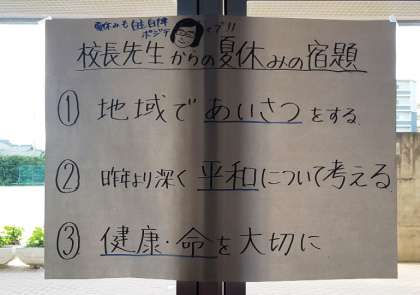 夏休みも自主自律
ポジティブ!!
校長先生からの夏休みの宿題
① 地域であいさつをする
② 昨年より深く平和について考える
③ 健康・命を大切に